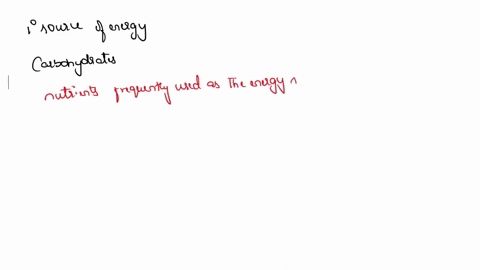 1° source of energy
Carbohydrates
nutrients frequently used as the energy